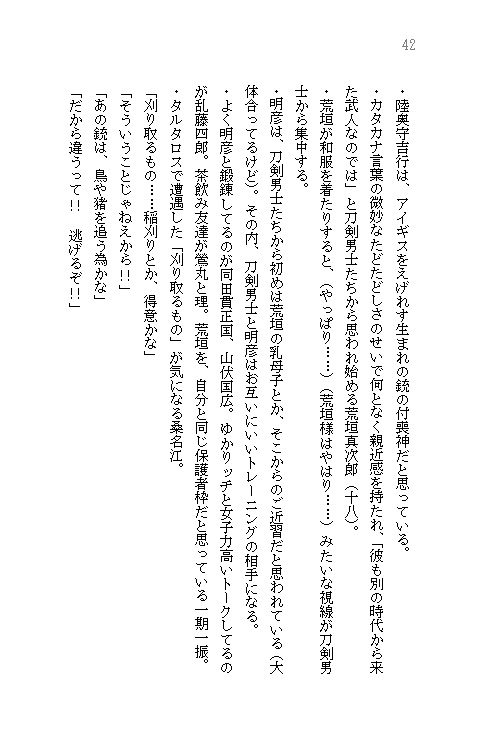 42
・陸奥守吉行は、アイギスをえげれす生まれの銃の付喪神だと思っている。
・カタカナ言葉の微妙なたどたどしさのせいで何となく親近感を持たれ、「彼も別の時代から来
た武人なのでは」と刀剣男士たちから思われ始める荒垣真次郎（十八）。
・荒垣が和服を着たりすると、（やっぱり……）（荒垣様はやはり……）みたいな視線が刀剣男
士から集中する。
・明彦は、刀剣男士たちから初めは荒垣の乳母子とか、そこからのご近習だと思われている（大
体合ってるけど）。その内、刀剣男士と明彦はお互いにいいトレーニングの相手になる。
・よく明彦と鍛錬してるのが同田貫正国、山伏国広。ゆかりッチと女子力高いトークしてるの
が乱藤四郎。茶飲み友達が鶯丸と理。荒垣を、自分と同じ保護者枠だと思っている一期一振。
・タルタロスで遭遇した「刈り取るもの」が気になる桑名江。
「刈り取るもの……稲刈りとか、得意かな」
「そういうことじゃねえから！！」
「あの銃は、鳥や猪を追う為かな」
「だから違うって！！　逃げるぞ！！」